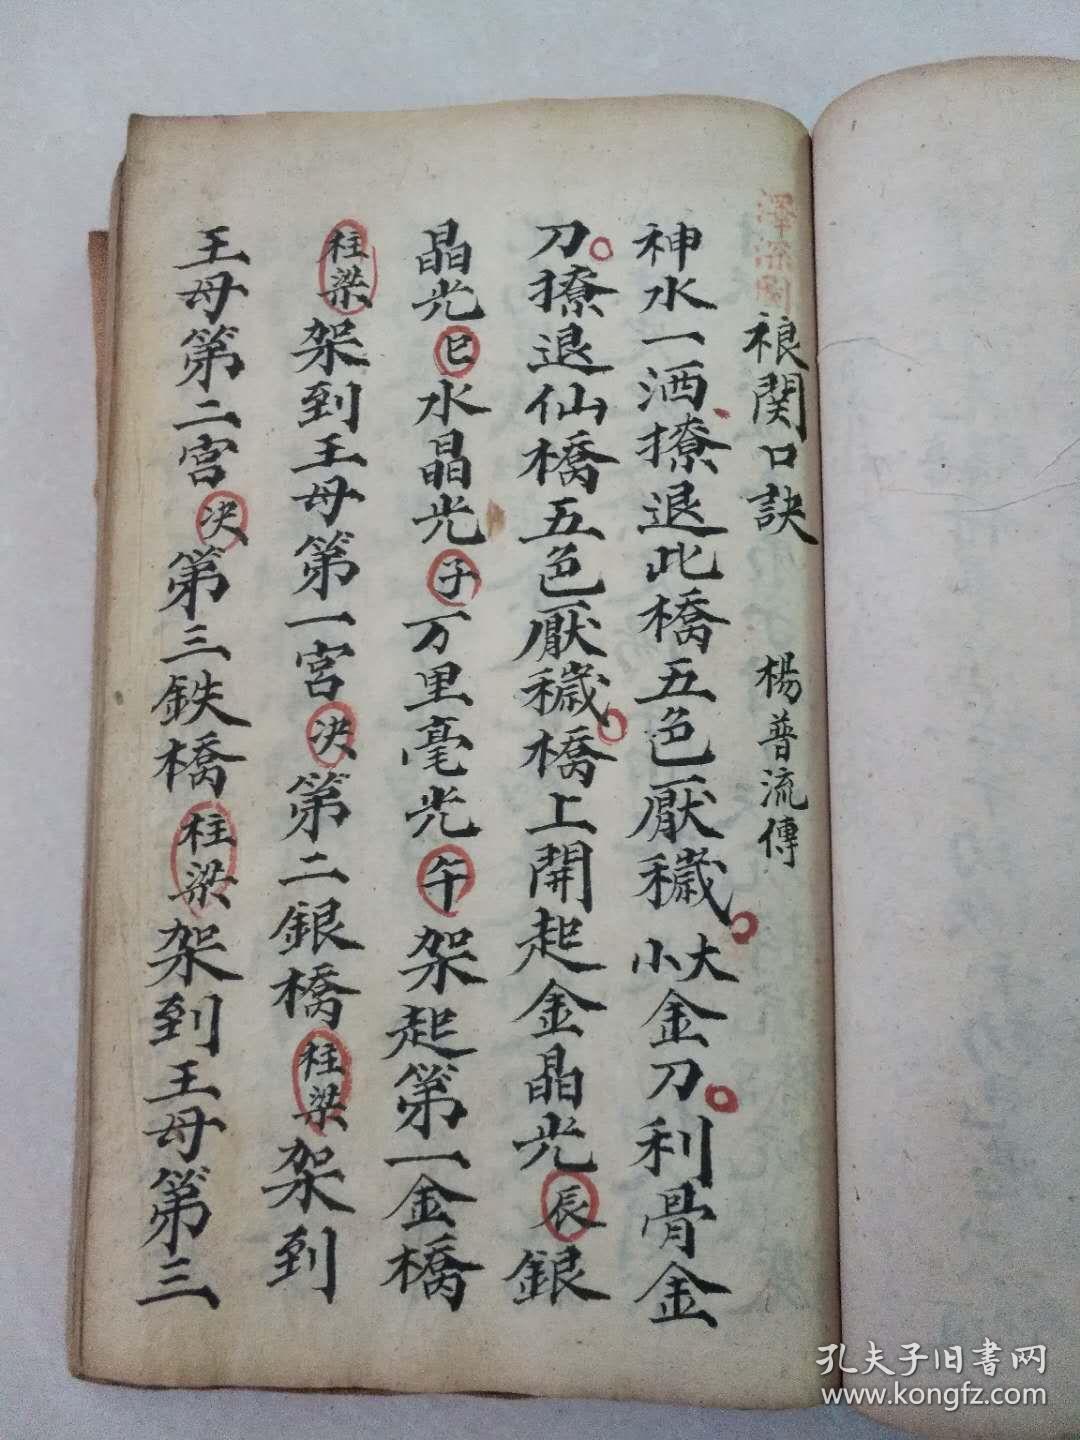 禄関口訣 楊普流傳
神水一洒撩退此橋五色厭穢大小金刀利骨金
刀撩退仙橋五色厭穢橋上開起金晶光辰銀
晶光巳水晶光子万里毫光午架起第一金橋
柱梁架到王母第一宮决第二銀橋柱梁架到
王母第二宮决第三鉄橋柱梁架到王母第三
孔夫子旧书网
www.kongfz.com